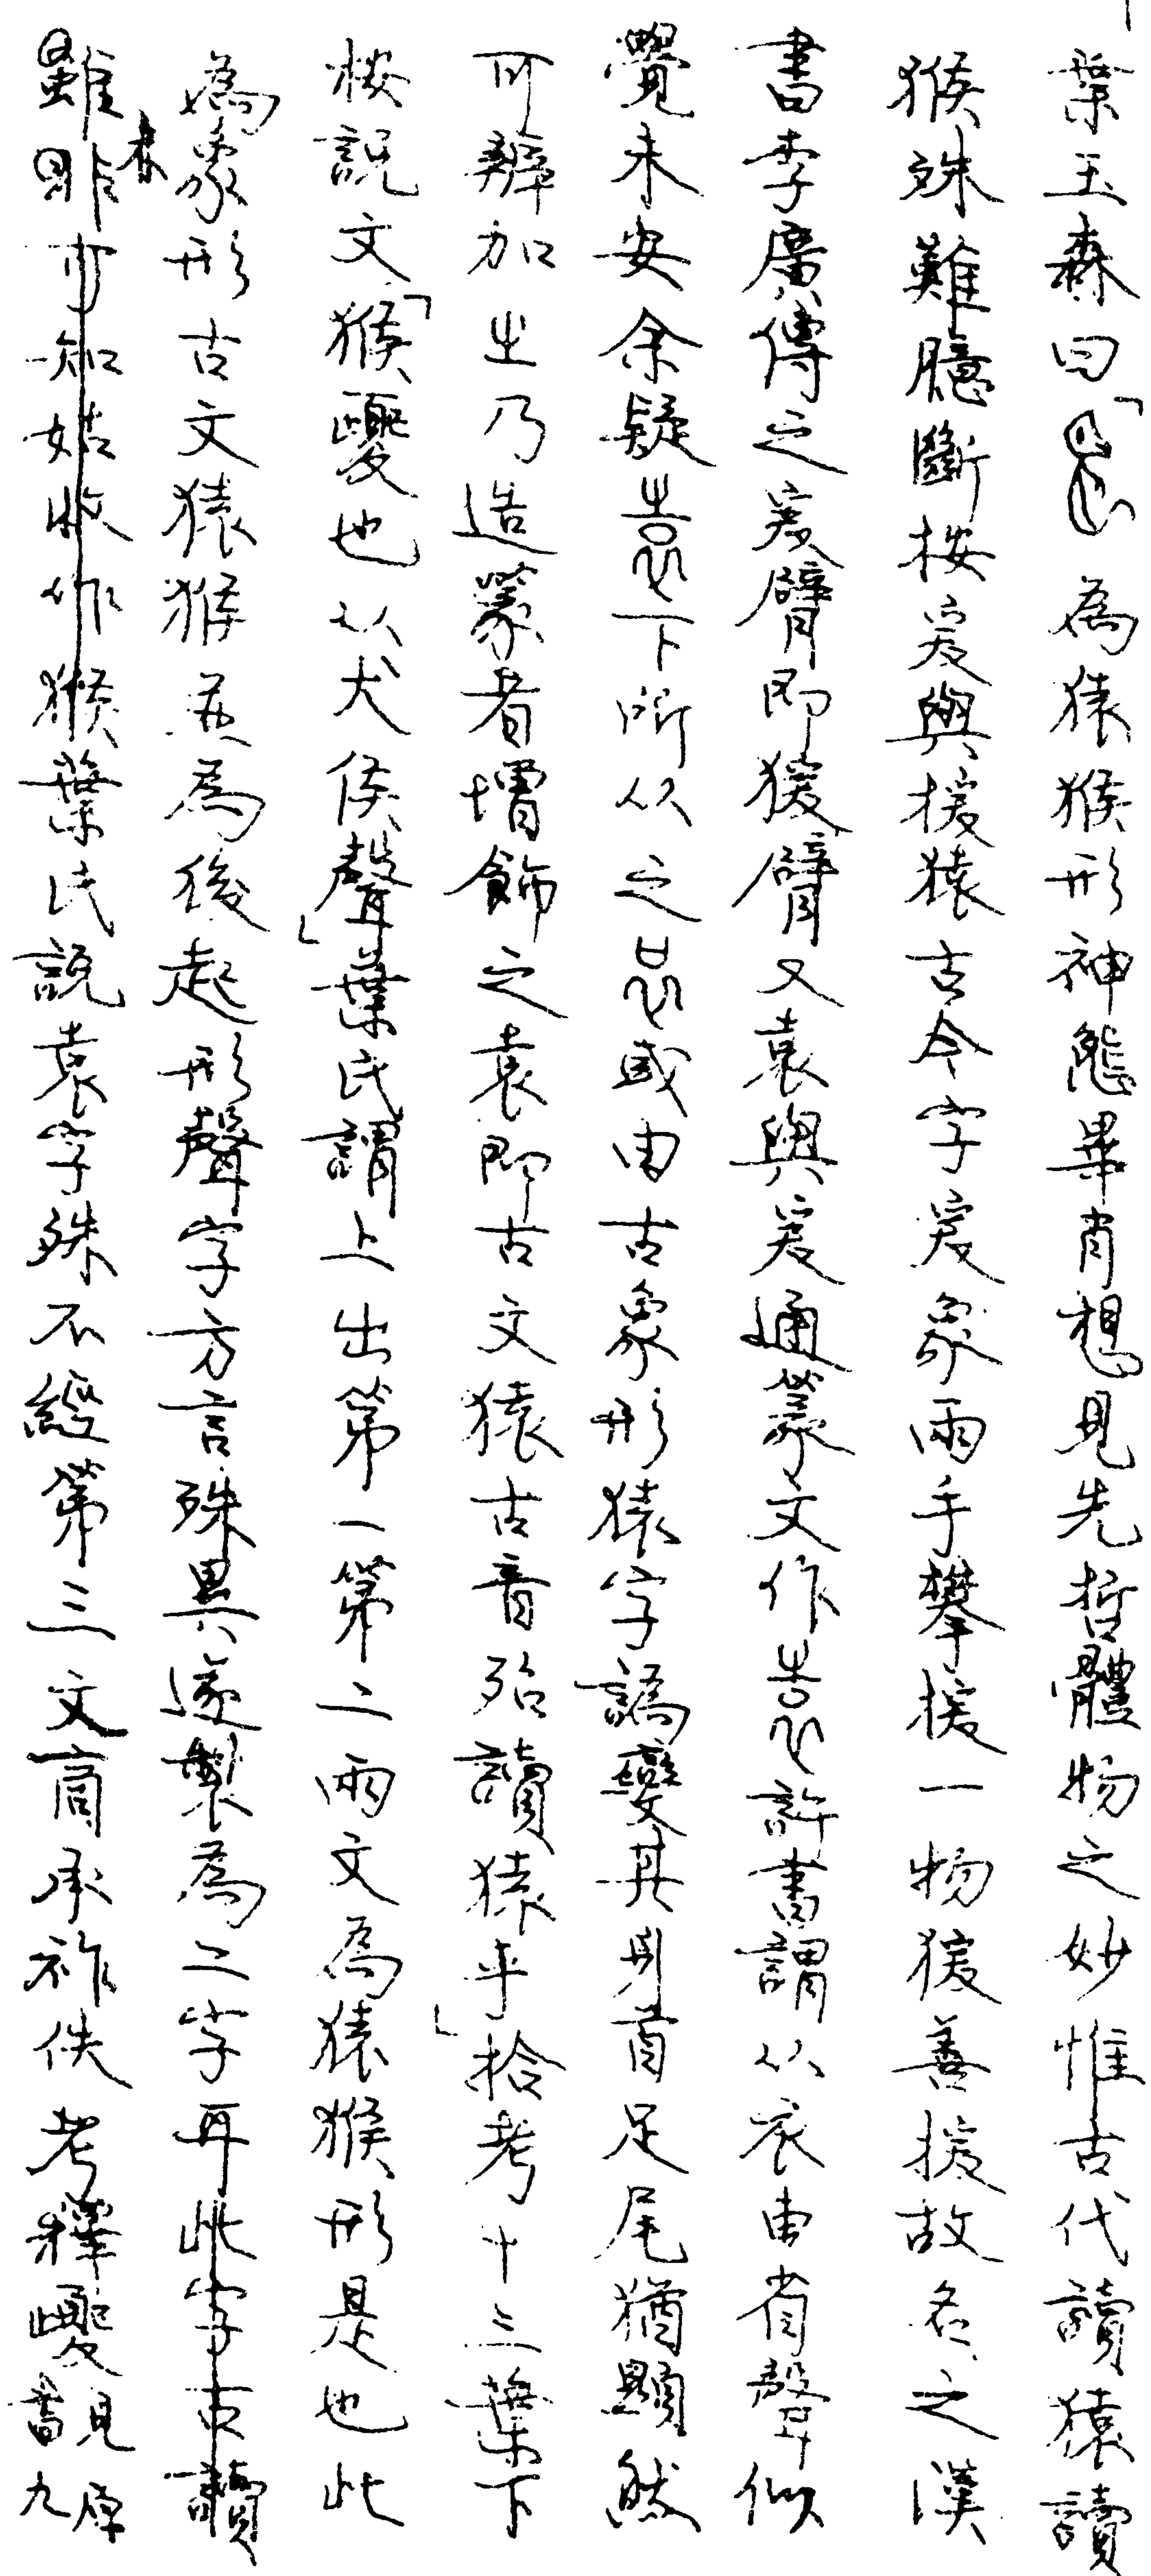 葉玉森曰「為猿猴形神態畢肖想見先哲體物之妙惟古代讀猿讀
猴殊難臆斷按爰與援猿古今字爰象兩手攀援一物猨善援故名之漢
書李廣傳之爰臂即猨臂又袁與爰通篆文作許書謂从衣叀省聲似
覺未安余疑下所从之或由古象形猿字譌變其身首足尾猶顯然
可辨加㞢乃造篆者增飾之袁即古文猿古音殆讀猿乎」拾考十三葉下
按説文「猴夒也从犬侯聲」葉氏謂上出第一第二兩文為猿猴形是也此
為象形古文猿猴並為後起形聲字方言殊異遂製為二字耳此字古讀
雖未可知姑收作猴葉氏説袁字殊不經第三文商承祚佚考釋夒見原書九